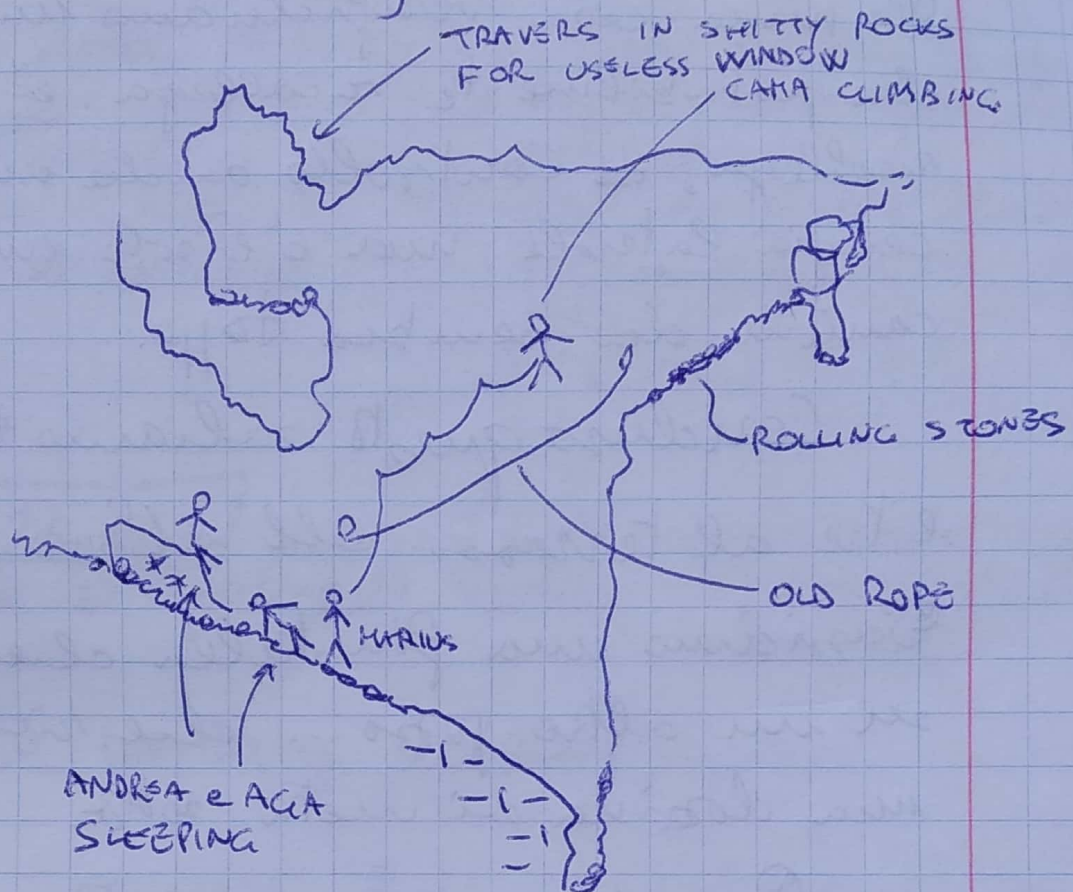 TRAVERS IN SHITTY ROCKS
FOR USELESS WINDOW
CAHA CLIMBING
ROLLING STONES
OLD ROPE
MARIUS
ANDREA e AGA
SLEEPING